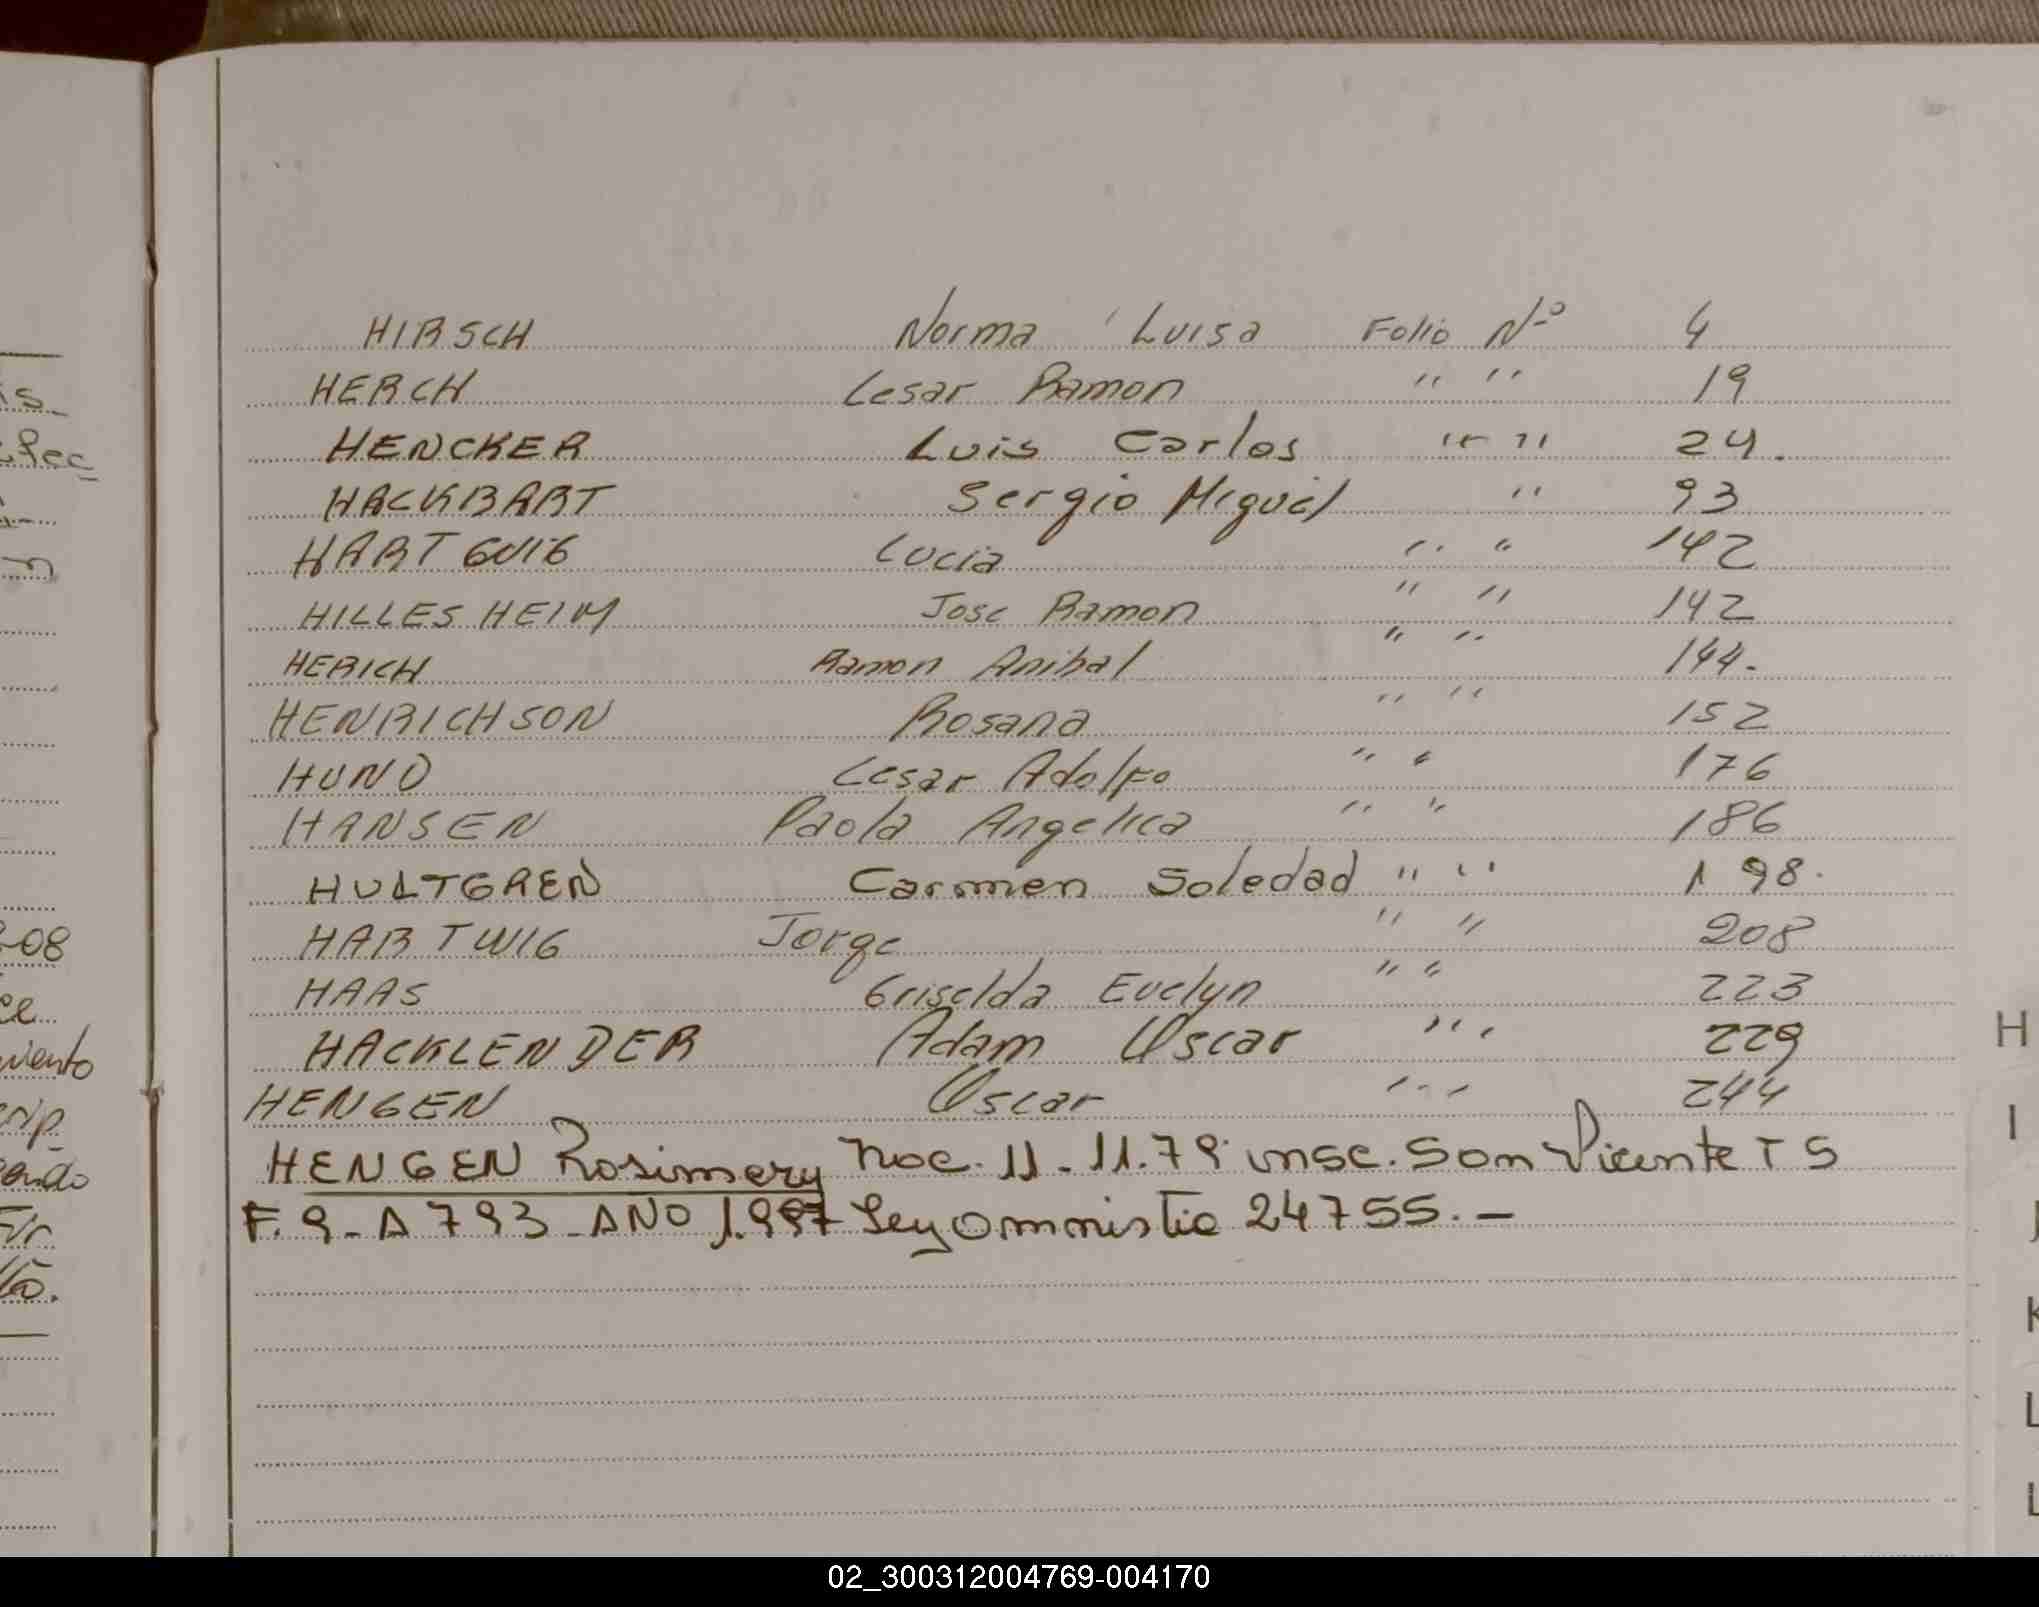 HIRSCH Norma Luisa Folio Nº 4
HERCH Cesar Ramon " " 19
HENCKER Luis Carlos " " 24.
HACKBART Sergio Miguel " 93
HARTGUIG Lucia " " 142
HILLESHEIM Jose Ramon " " 142
HERICH Ramon Anibal " " 144.
HENRICHSON Rosana " " 152
HUND Cesar Adolfo " " 176
HANSEN Paola Angelica " " 186
HULTGREN Carmen Soledad " " 198.
HARTWIG Jorge " " 208
HAAS Griselda Evelyn " " 223
HACKLENDER Adam Oscar " " 229
HENGEN Oscar " " 244
HENGEN Rosimery Nac. 11-11.79 insc. San Vicente T5
F.9-A793-AÑO 1.997 Ley amnistia 24755.-
-08
viento
endo
H
I
J
K
L
L
02_300312004769-004170